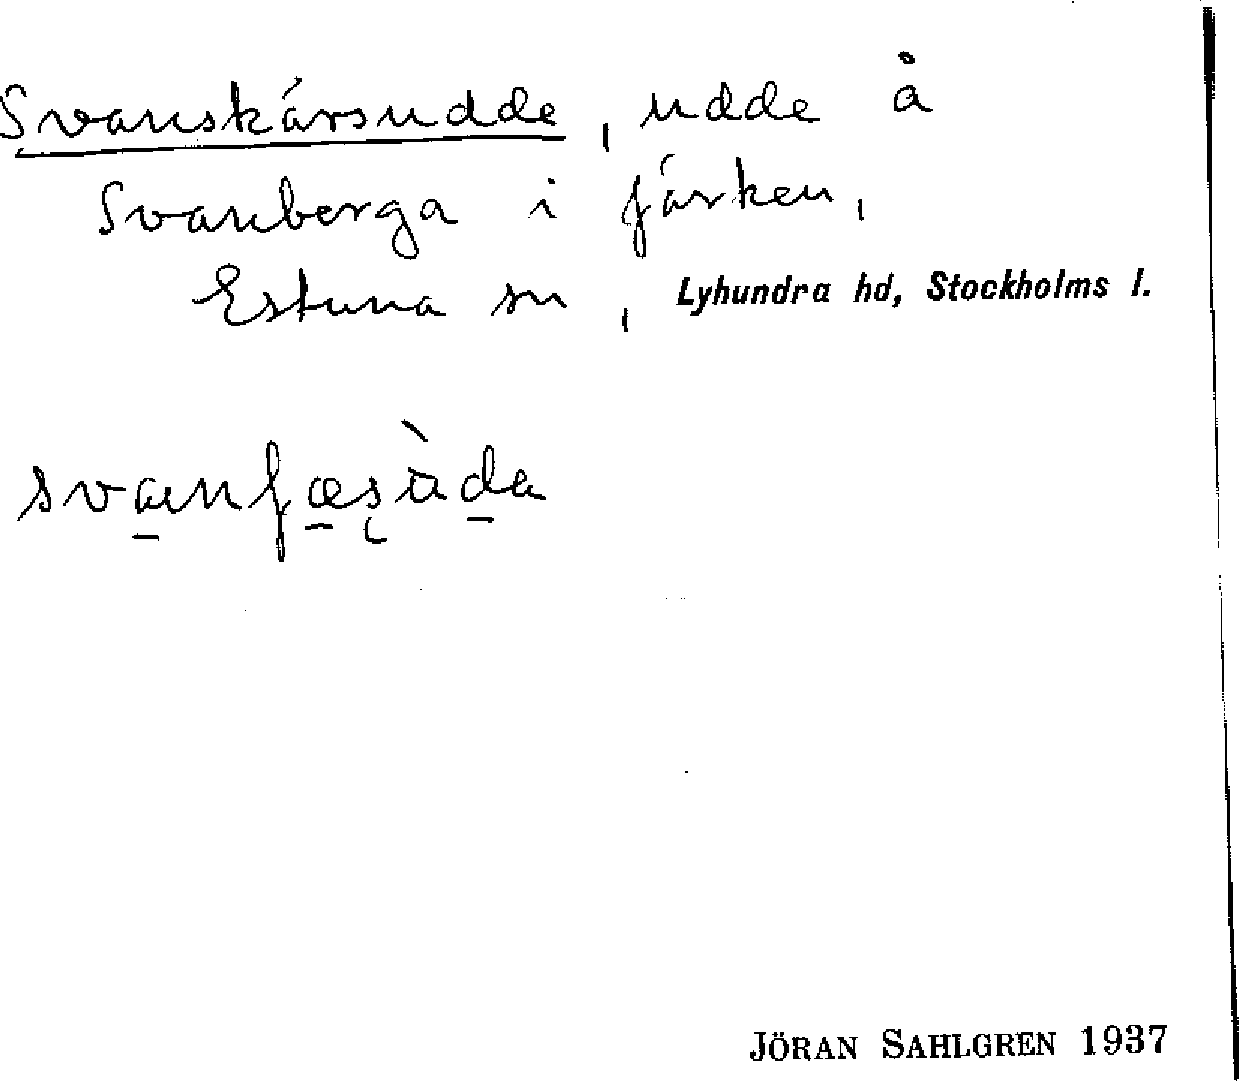 Svanskärsudde, udde å
Svanberga i färken,
Estuna sn, Lyhundra hd, Stockholms l.
JÖRAN SAHLGREN 1937